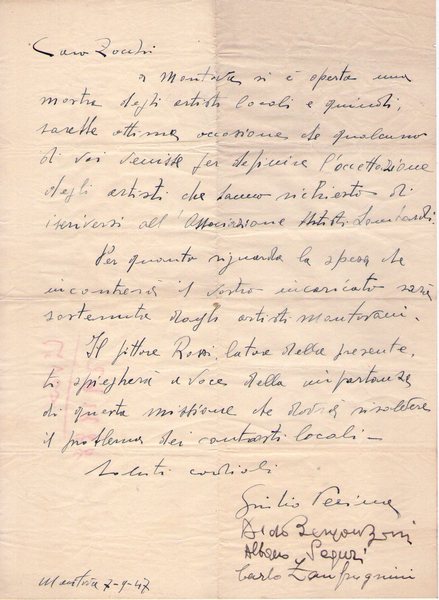 Caro Zocchi
a Mantova si è aperta una
mostra degli artisti locali e quindi,
sarebbe ottima occasione che qualcuno
di voi venisse per definire l'accettazione
degli artisti che hanno richiesto di
iscriversi all'Associazione Artisti Lombardi.
Per quanto riguarda la spesa che
incontrerà il vostro incaricato sarà
sostenuta dagli artisti mantovani.
Il pittore Rossi, latore della presente,
ti spiegherà a voce della importanza
di questa missione che dovrà risolvere
il problema dei contrasti locali –
Saluti cordiali
Giulio Perina
Aldo Bergonzoni
Albano Seguri
Carlo Zanfrognini
Mantova 7-9-47